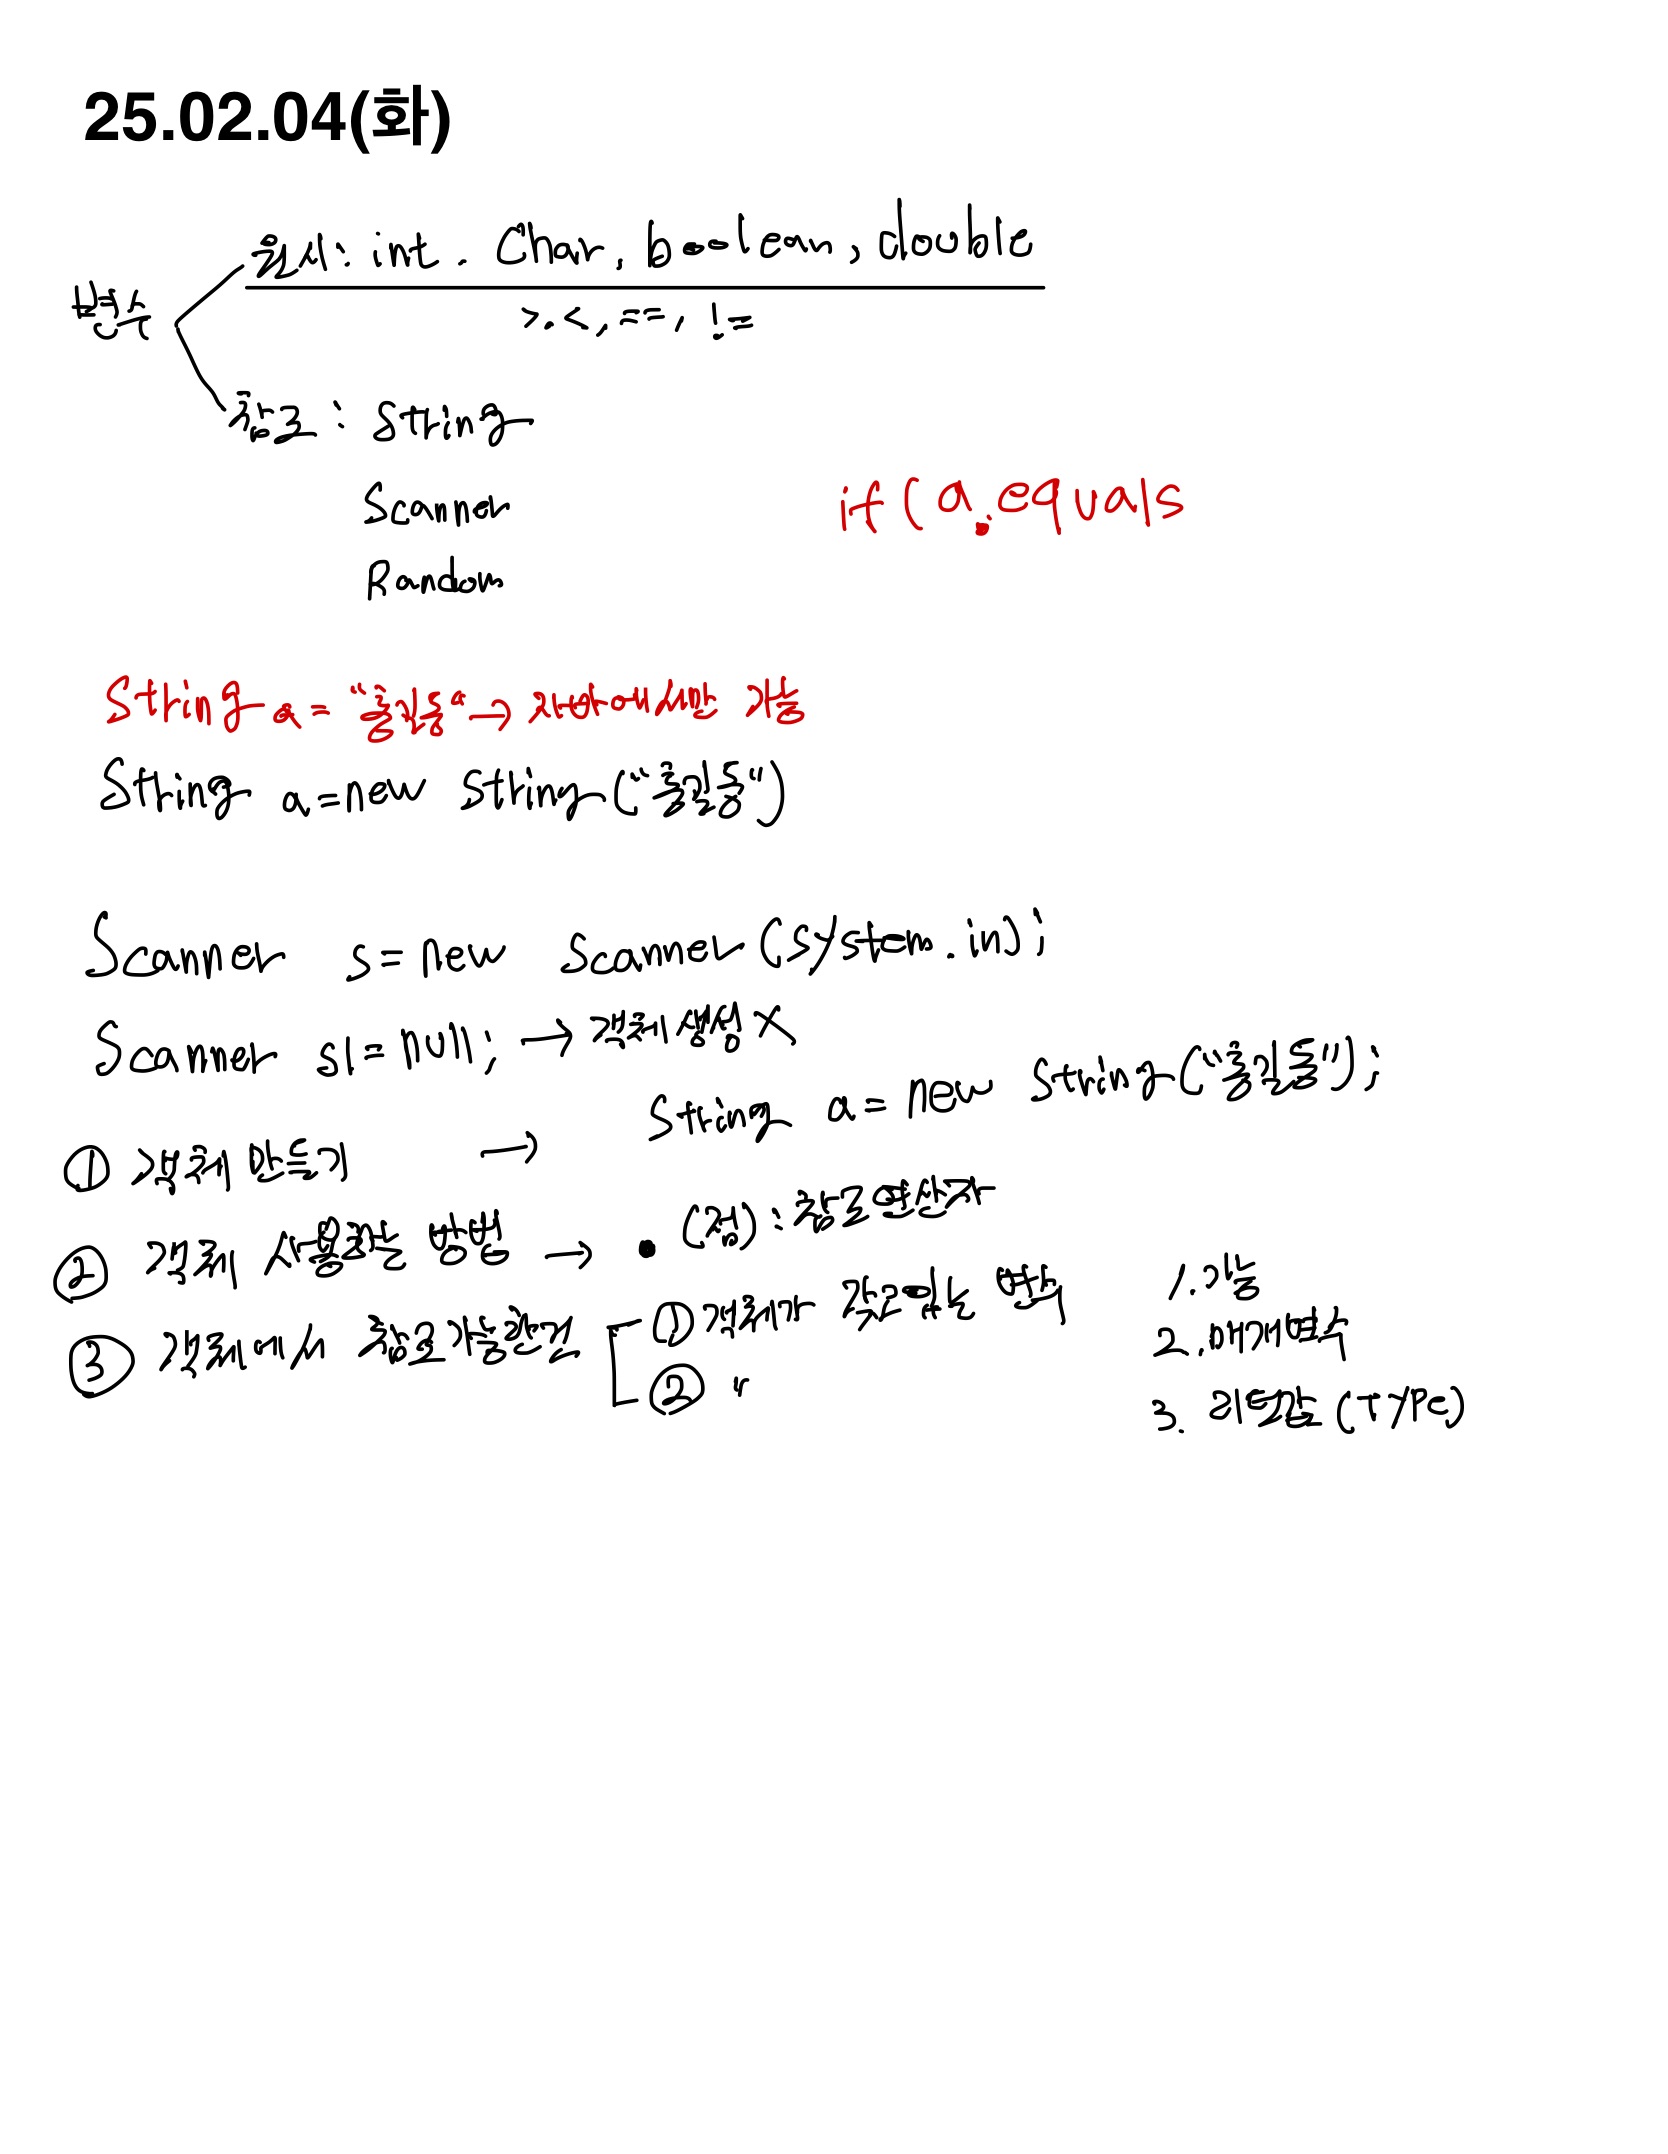 25.02.04(화)
원시: int. Char, boolean, double
변수
>.<, ==, !=
참조: String
Scanner
if (a.equals
Random
String a = "홍길동" → 자바에서만 가능
String a = new String("홍길동")
Scanner s = new Scanner(System.in);
Scanner s1 = null; → 객체생성 X
① 객체 만들기 → String a = new String("홍길동");
② 객체 사용하는 방법 → • (점): 참조연산자
③ 객체에서 참조가능한건 ① 객체가 갖고있는 변수
② "
1. 기능
2. 매개변수
3. 리턴값 (TYPe)